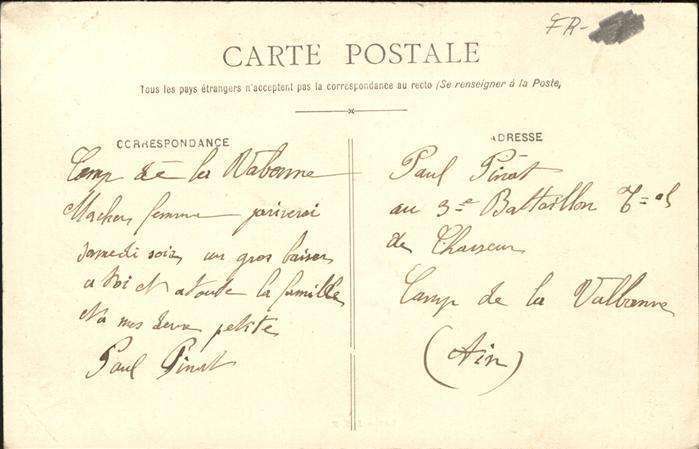 FR-
CARTE POSTALE
Tous les pays étrangers n'acceptent pas la correspondance au recto (Se renseigner à la Poste)
CORRESPONDANCE
Camp de la Valbonne
Machere femme jariverai
samedi soir un gros baiser
a toi et atoute la famille
et a mes deux petite
Paul Pinat
ADRESSE
Paul Pinat
au 3=e Battaillon T=al
de Chasseur
Camp de la Valbonne
(Ain)